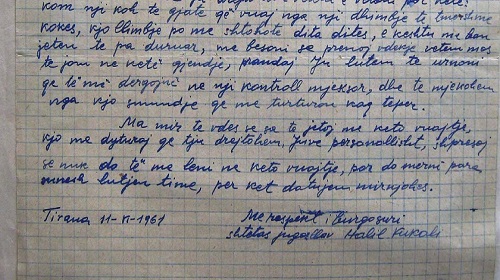 kam nji koh të gjatë që vuaj nga nji dhimbje të tmershme
kokes, kjo dhimbje po me shtohet dita dites, e keshtu me ban
jeten te pa durueur, me besoni se prenoj vdekje vetem mos
te jem ne ketë gjendje, prandaj Ju lutem te urnoni
qe të më dergojnë ne nji kontroll mjeksor, dhe te mjekohem
nga kjo smundje qe me turturon nag teper.
Ma mir te vdes se sa te jetoj me keto vuajtje,
kjo me dyturoj qe t'ju drejtohem Juve personalisht, shpresoj
se nuk do të me leni ne keto vuajtje, por do merni para
lutjen time, per ket detyrem mirnjohes.
Tirana 11-XI-1961
Me respekt i Burgosuri
shtetas jugosllav Halil